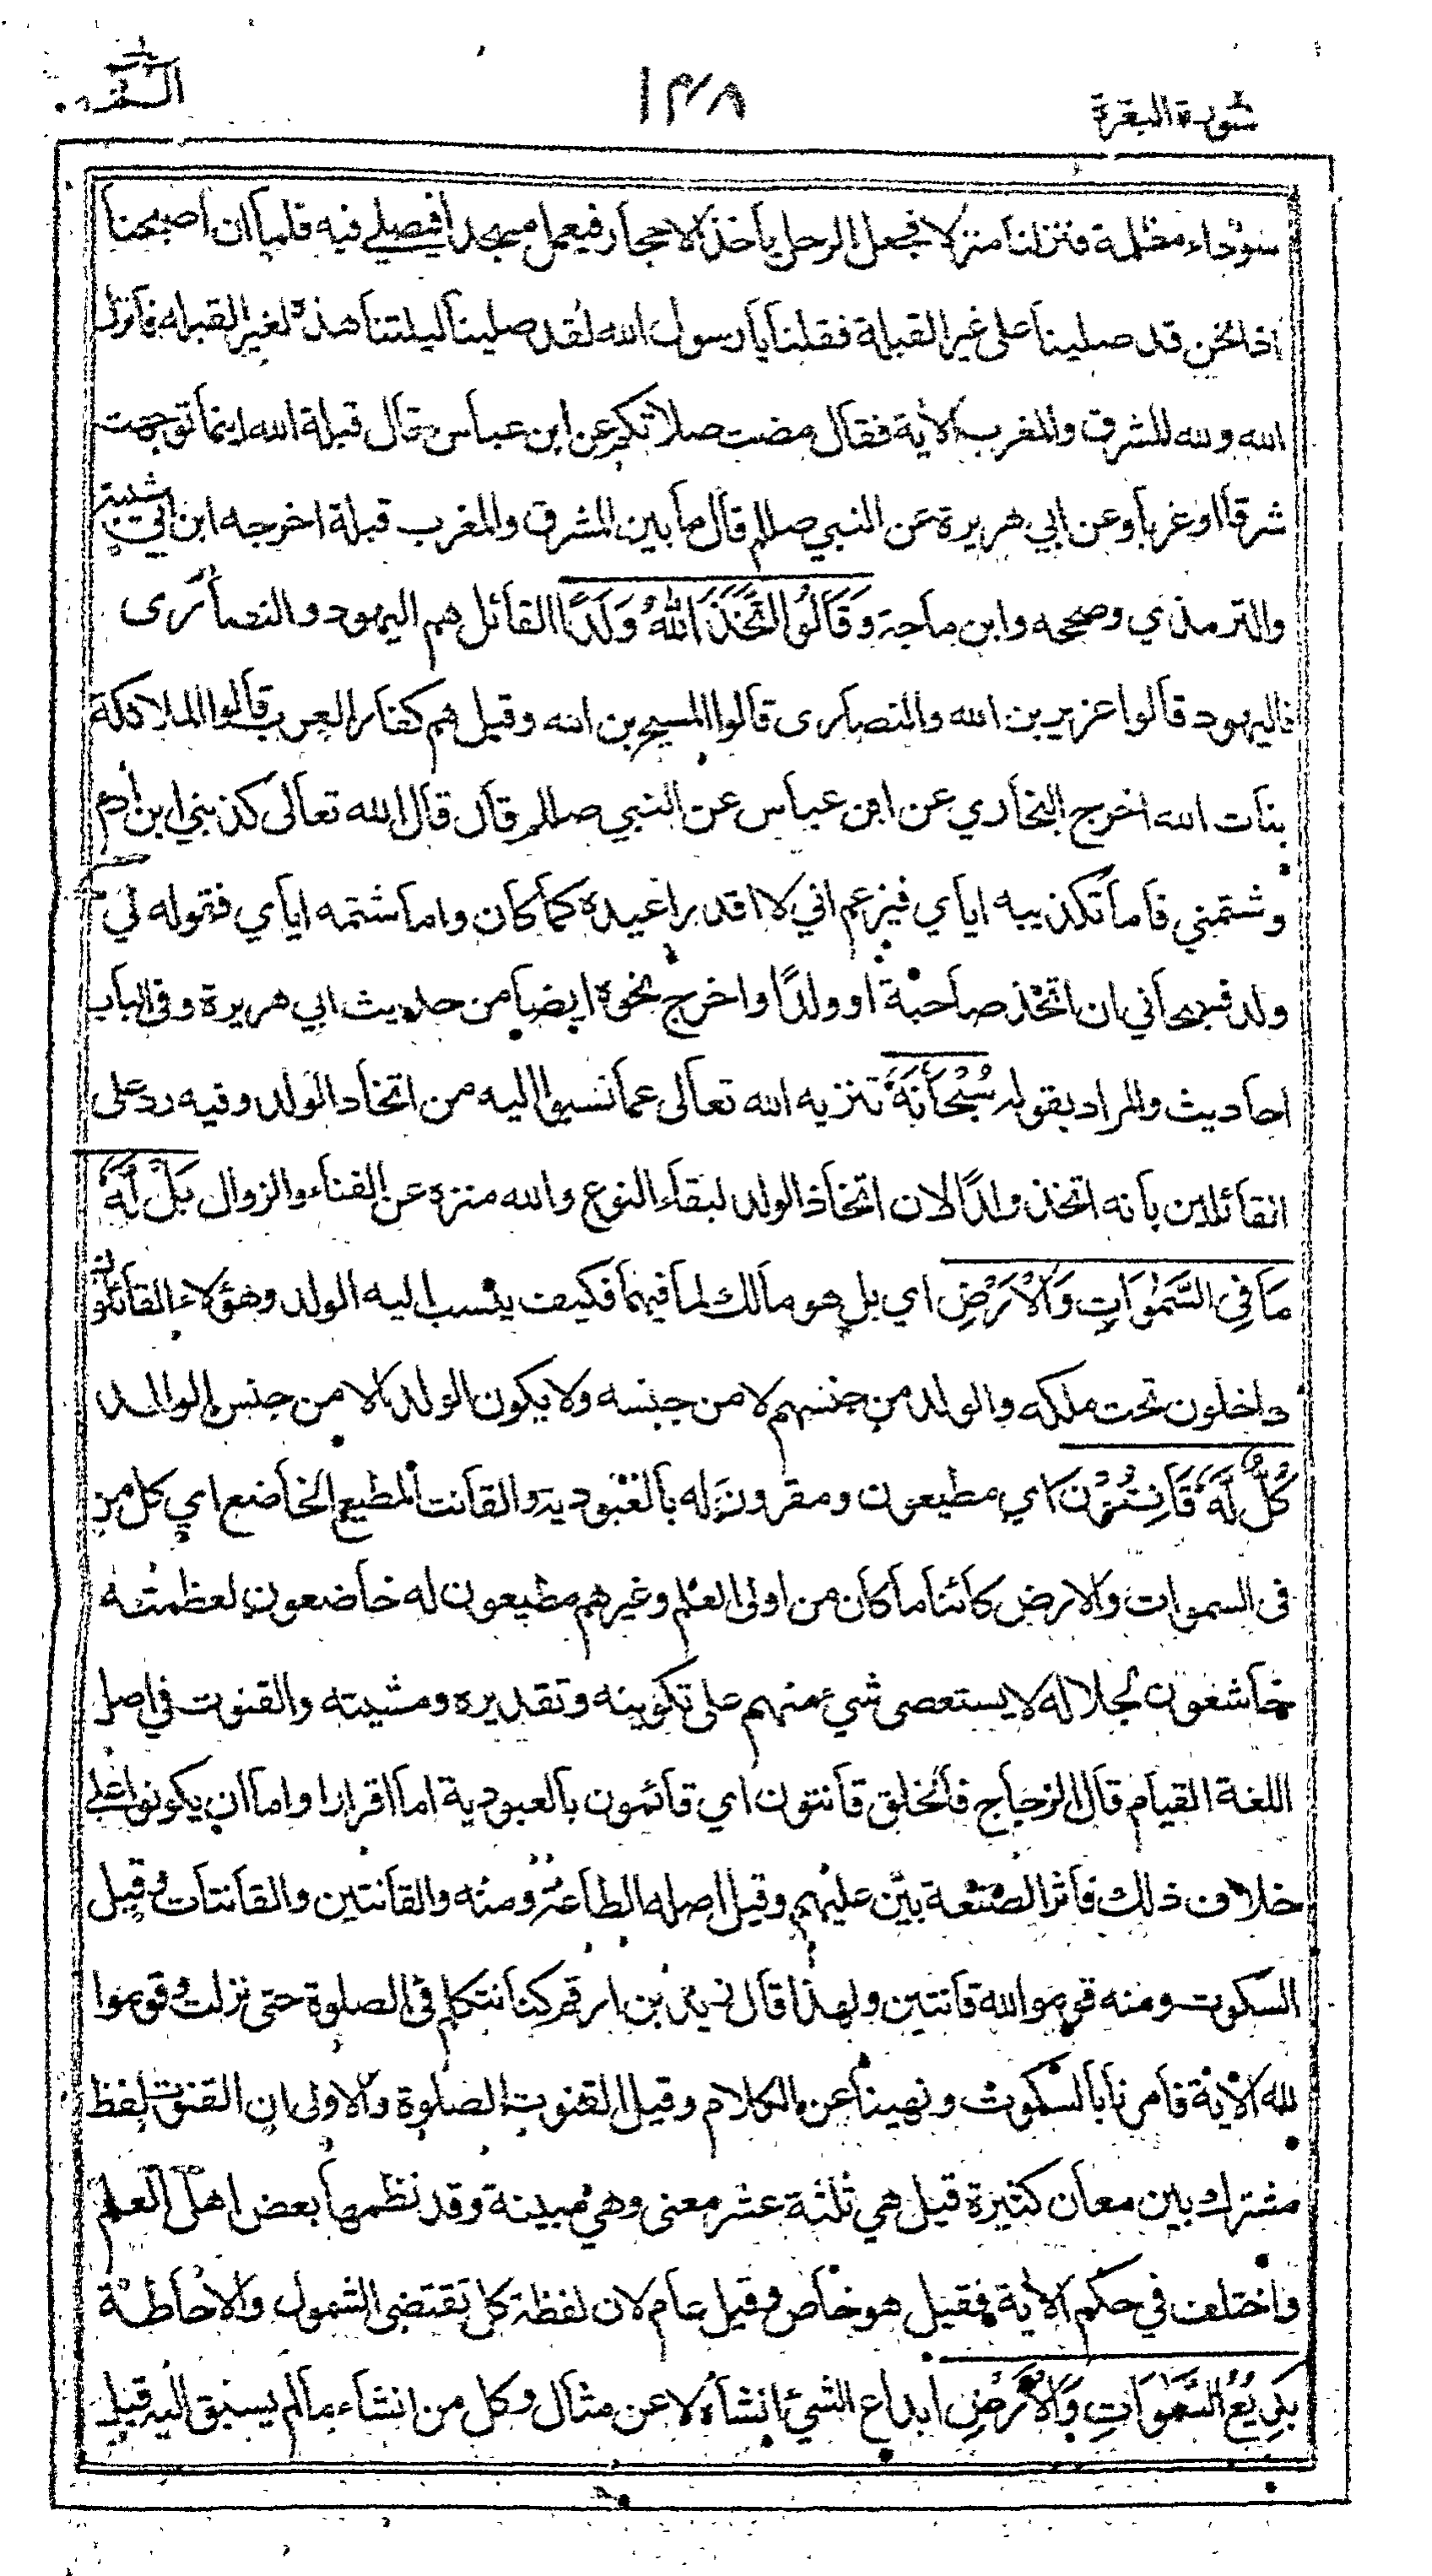 سورة البقرة ١٣٨ الم
سوداء مظلمة فنزلنا منزلا فجعل الرجل يأخذ الاحجار فيعمل مسجدا فيصلي فيه فلما ان اصبحنا
اذا نحن قد صلينا على غير القبلة فقلنا يا رسول الله لقد صلينا ليلتنا هذه لغير القبلة فانزل
الله ولله المشرق والمغرب الأية فقال مضت صلاتكم عن ابن عباس قال قبلة الله اينما توجهت
شرقا اوغربا وعن ابي هريرة عن النبي صللم قال ما بين المشرق والمغرب قبلة اخرجه ابن ابي شيبة
والترمذي وصححه وابن ماجة وَقَالُوا اتَّخَذَ اللهُ وَلَدًا القائل هم اليهود والنصارى
فاليهود قالوا عزير بن الله والنصارى قالوا المسيح بن الله وقيل هم كفار العرب قالوا الملائكة
بنات الله اخرج البخاري عن ابن عباس عن النبي صللم قال قال الله تعالى كذبني ابن أدم
وشتمني فاما تكذيبه اياي فيزعم اني لا اقدر اعيده كما كان واما شتمه اياي فقوله لي
ولد فسبحاني ان اتخذ صاحبة او ولدًا واخرج نحوه ايضا من حديث ابي هريرة وفي الباب
احاديث والمراد بقوله سُبْحَانَهُ تنزيه الله تعالى عما نسبوا اليه من اتخاذ الولد وفيه رد على
القائلين بانه اتخذ ولدًا لان اتخاذ الولد لبقاء النوع والله منزه عن الفناء والزوال بَلْ لَّهُ
مَا فِي السَّمٰوَاتِ وَالْاَرْضِ اي بل هو مالك لما فيهما فكيف ينسب اليه الولد وهؤلاء القائلون
داخلون تحت ملكه والولد من جنسهم لا من جنسه ولا يكون الولد الا من جنس الوالد
كُلٌّ لَّهُ قَانِتُوْنَ اي مطيعون ومقرون له بالعبودية والقانت المطيع الخاضع اي كل من
في السموات والارض كائنا ما كان من اولى العلم وغيرهم مطيعون له خاضعون لعظمته
خاشعون لجلاله لا يستعصى شيء منهم على تكوينه وتقديره ومشيته والقنوت في اصل
اللغة القيام قال الزجاج فالخلق قانتون اي قائمون بالعبودية اما اقرارا واما ان يكونوا على
خلاف ذلك فاثر الصنعة بيّن عليهم وقيل اصله الطاعة ومنه والقانتين والقانتات وقيل
السكوت ومنه قوموا لله قانتين ولهذا قال زيد بن ارقم كنا نتكلم في الصلوة حتى نزلت وقوموا
لله الأية فامرنا بالسكوت ونهينا عن الكلام وقيل القنوت الصلوة والاولى ان القنوت لفظ
مشترك بين معان كثيرة قيل هي ثلثة عشر معنى وهي مبينة وقد نظمها بعض اهل العلم
واختلف في حكم الأية فقيل هو خاص وقيل عام لان لفظة كل تقتضى الشمول والاحاطة
بَدِيْعُ السَّمٰوَاتِ وَالْاَرْضِ ابداع الشيء انشاؤه لا عن مثال وكل من انشاء ما لم يسبق اليه قيل